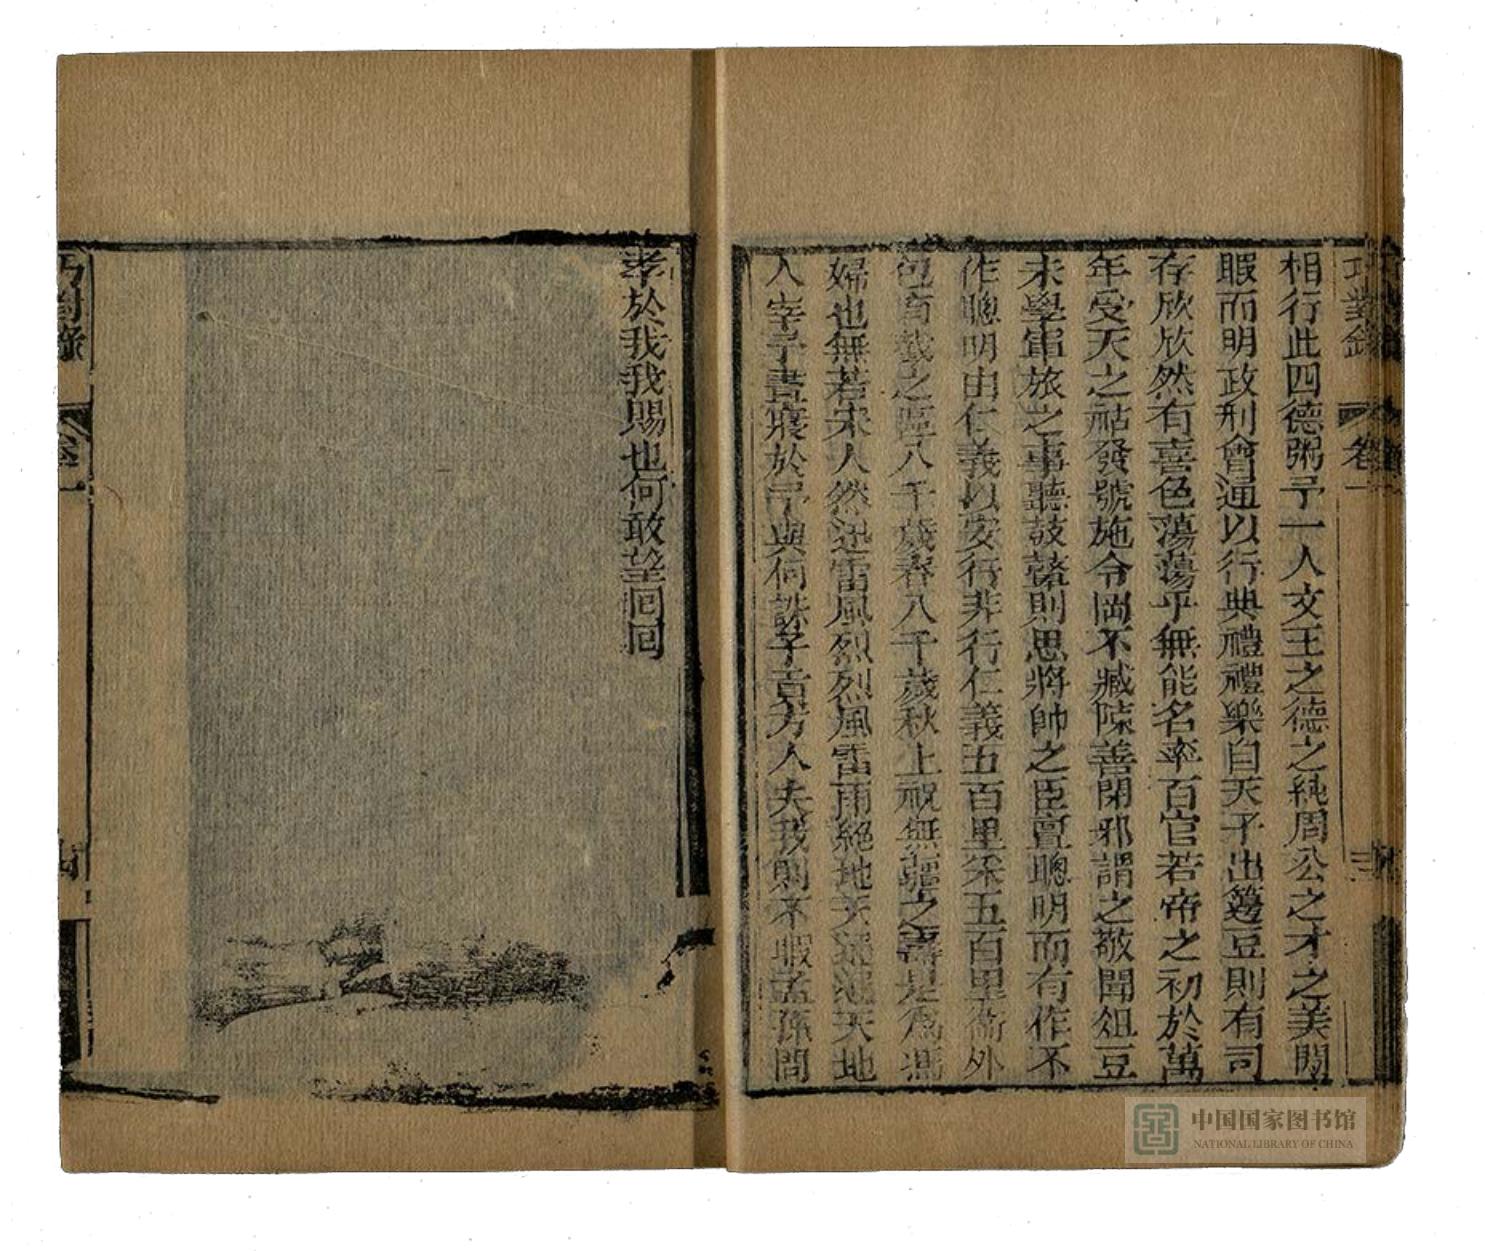 巧對錄 卷一 三
相行此四德弼予一人文王之德之純周公之才之美閒
暇而明政刑會通以行典禮禮樂自天子出籩豆則有司
存欣欣然有喜色蕩蕩乎無能名率百官若帝之初於萬
年受天之祜發號施令罔不臧陳善閉邪謂之敬聞俎豆
未學軍旅之事聽鼓鼙則思將帥之臣亶聰明而有作不
作聰明由仁義以安行非行仁義五百里采五百里衞外
包有截之區八千歲春八千歲秋上祝無疆之壽是爲馮
婦也無若宋人然迅雷風烈烈風雷雨絕地天通通天地
人宰予晝寢於予與何誅子貢方人夫我則不暇孟孫問
孝於我我賜也何敢望回回
巧對錄 卷一 四
中国国家图书馆
NATIONAL LIBRARY OF CHINA